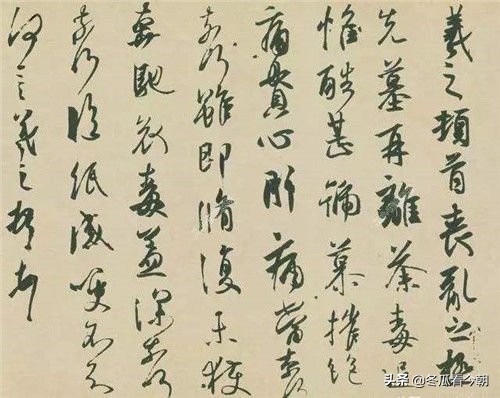 羲之頓首喪亂之極
先墓再離荼毒追
惟酷甚號慕摧絕
痛貫心肝痛當奈何
奈何雖即脩復未獲
奔馳哀毒益深奈何
奈何臨紙感哽不知
何言羲之頓首頓首
头条 @冬瓜看今朝